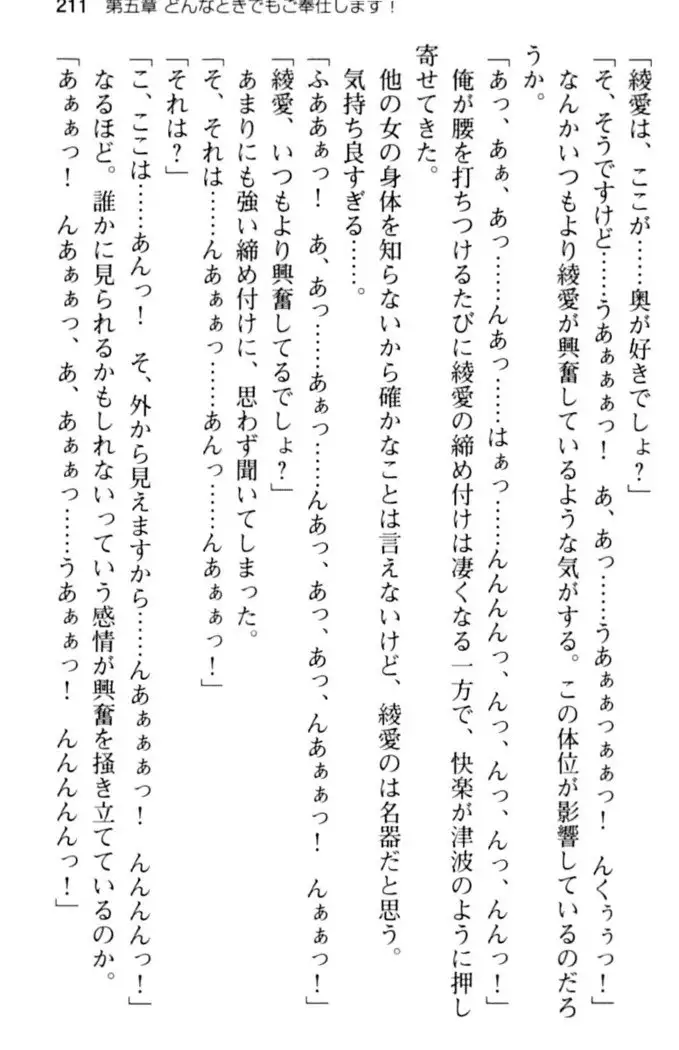 211 第五章 どんなときでもご奉仕します！
「綾愛は、ここが……奥が好きでしょ？」
「そ、そうですけど……うあぁぁぁっ！　あ、あっ……うあぁぁつぁぁっ！　んくぅぅっ！」
　なんかいつもより綾愛が興奮しているような気がする。この体位が影響しているのだろ
うか。
「あっ、あぁ、あっ……んあっ……はぁっ……んんんんっ、んっ、んっ、んっ、んんっ！」
　俺が腰を打ちつけるたびに綾愛の締め付けは凄くなる一方で、快楽が津波のように押し
寄せてきた。
　他の女の身体を知らないから確かなことは言えないけど、綾愛のは名器だと思う。
　気持ち良すぎる……。
「ふああぁっ！　あ、あっ……あぁっ……んあっ、あっ、あっ、んあぁぁっ！　んぁぁっ！」
「綾愛、いつもより興奮してるでしょ？」
　あまりにも強い締め付けに、思わず聞いてしまった。
「そ、それは……んあぁぁっ……あんっ……んあぁぁっ！」
「それは？」
「こ、ここは……あんっ！　そ、外から見えますから……んあぁぁぁっ！　んんんんっ！」
　なるほど。誰かに見られるかもしれないっていう感情が興奮を掻き立てているのか。
「あぁぁっ！　んあぁぁっ、あ、あぁぁっ……うあぁぁっ！　んんんんんっ！」